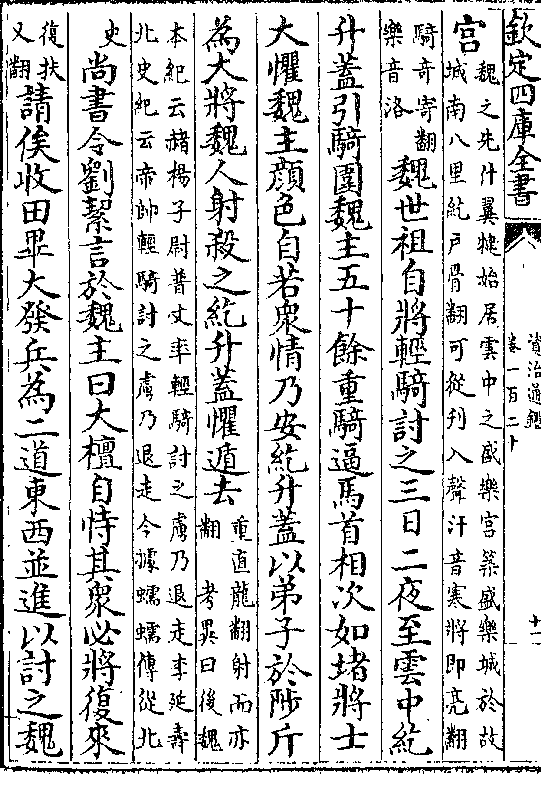 欽定四庫全書
資治通鑑
卷一百二十
十一
宮
魏之先什翼犍始居雲中之盛樂宮築盛樂城於故
城南八里紇戶骨翻可從刋入聲汗音寒將即亮翻
騎奇寄翻
樂音洛
魏世祖自將輕騎討之三日二夜至雲中紇
升蓋引騎圍魏主五十餘重騎逼馬首相次如堵將士
大懼魏主顔色自若衆情乃安紇升蓋以弟子於陟斤
為大將魏人射殺之紇升蓋懼遁去
重直龍翻射而亦
翻 考異曰後魏
本紀云赭楊子尉普文率輕騎討之虜乃退走李延壽
北史紀云帝帥輕騎討之虜乃退走今據蠕蠕傳從北
史
尚書令劉絜言於魏主曰大檀自恃其衆必將復來
復扶
又翻
請俟收田畢大發兵為二道東西並進以討之魏